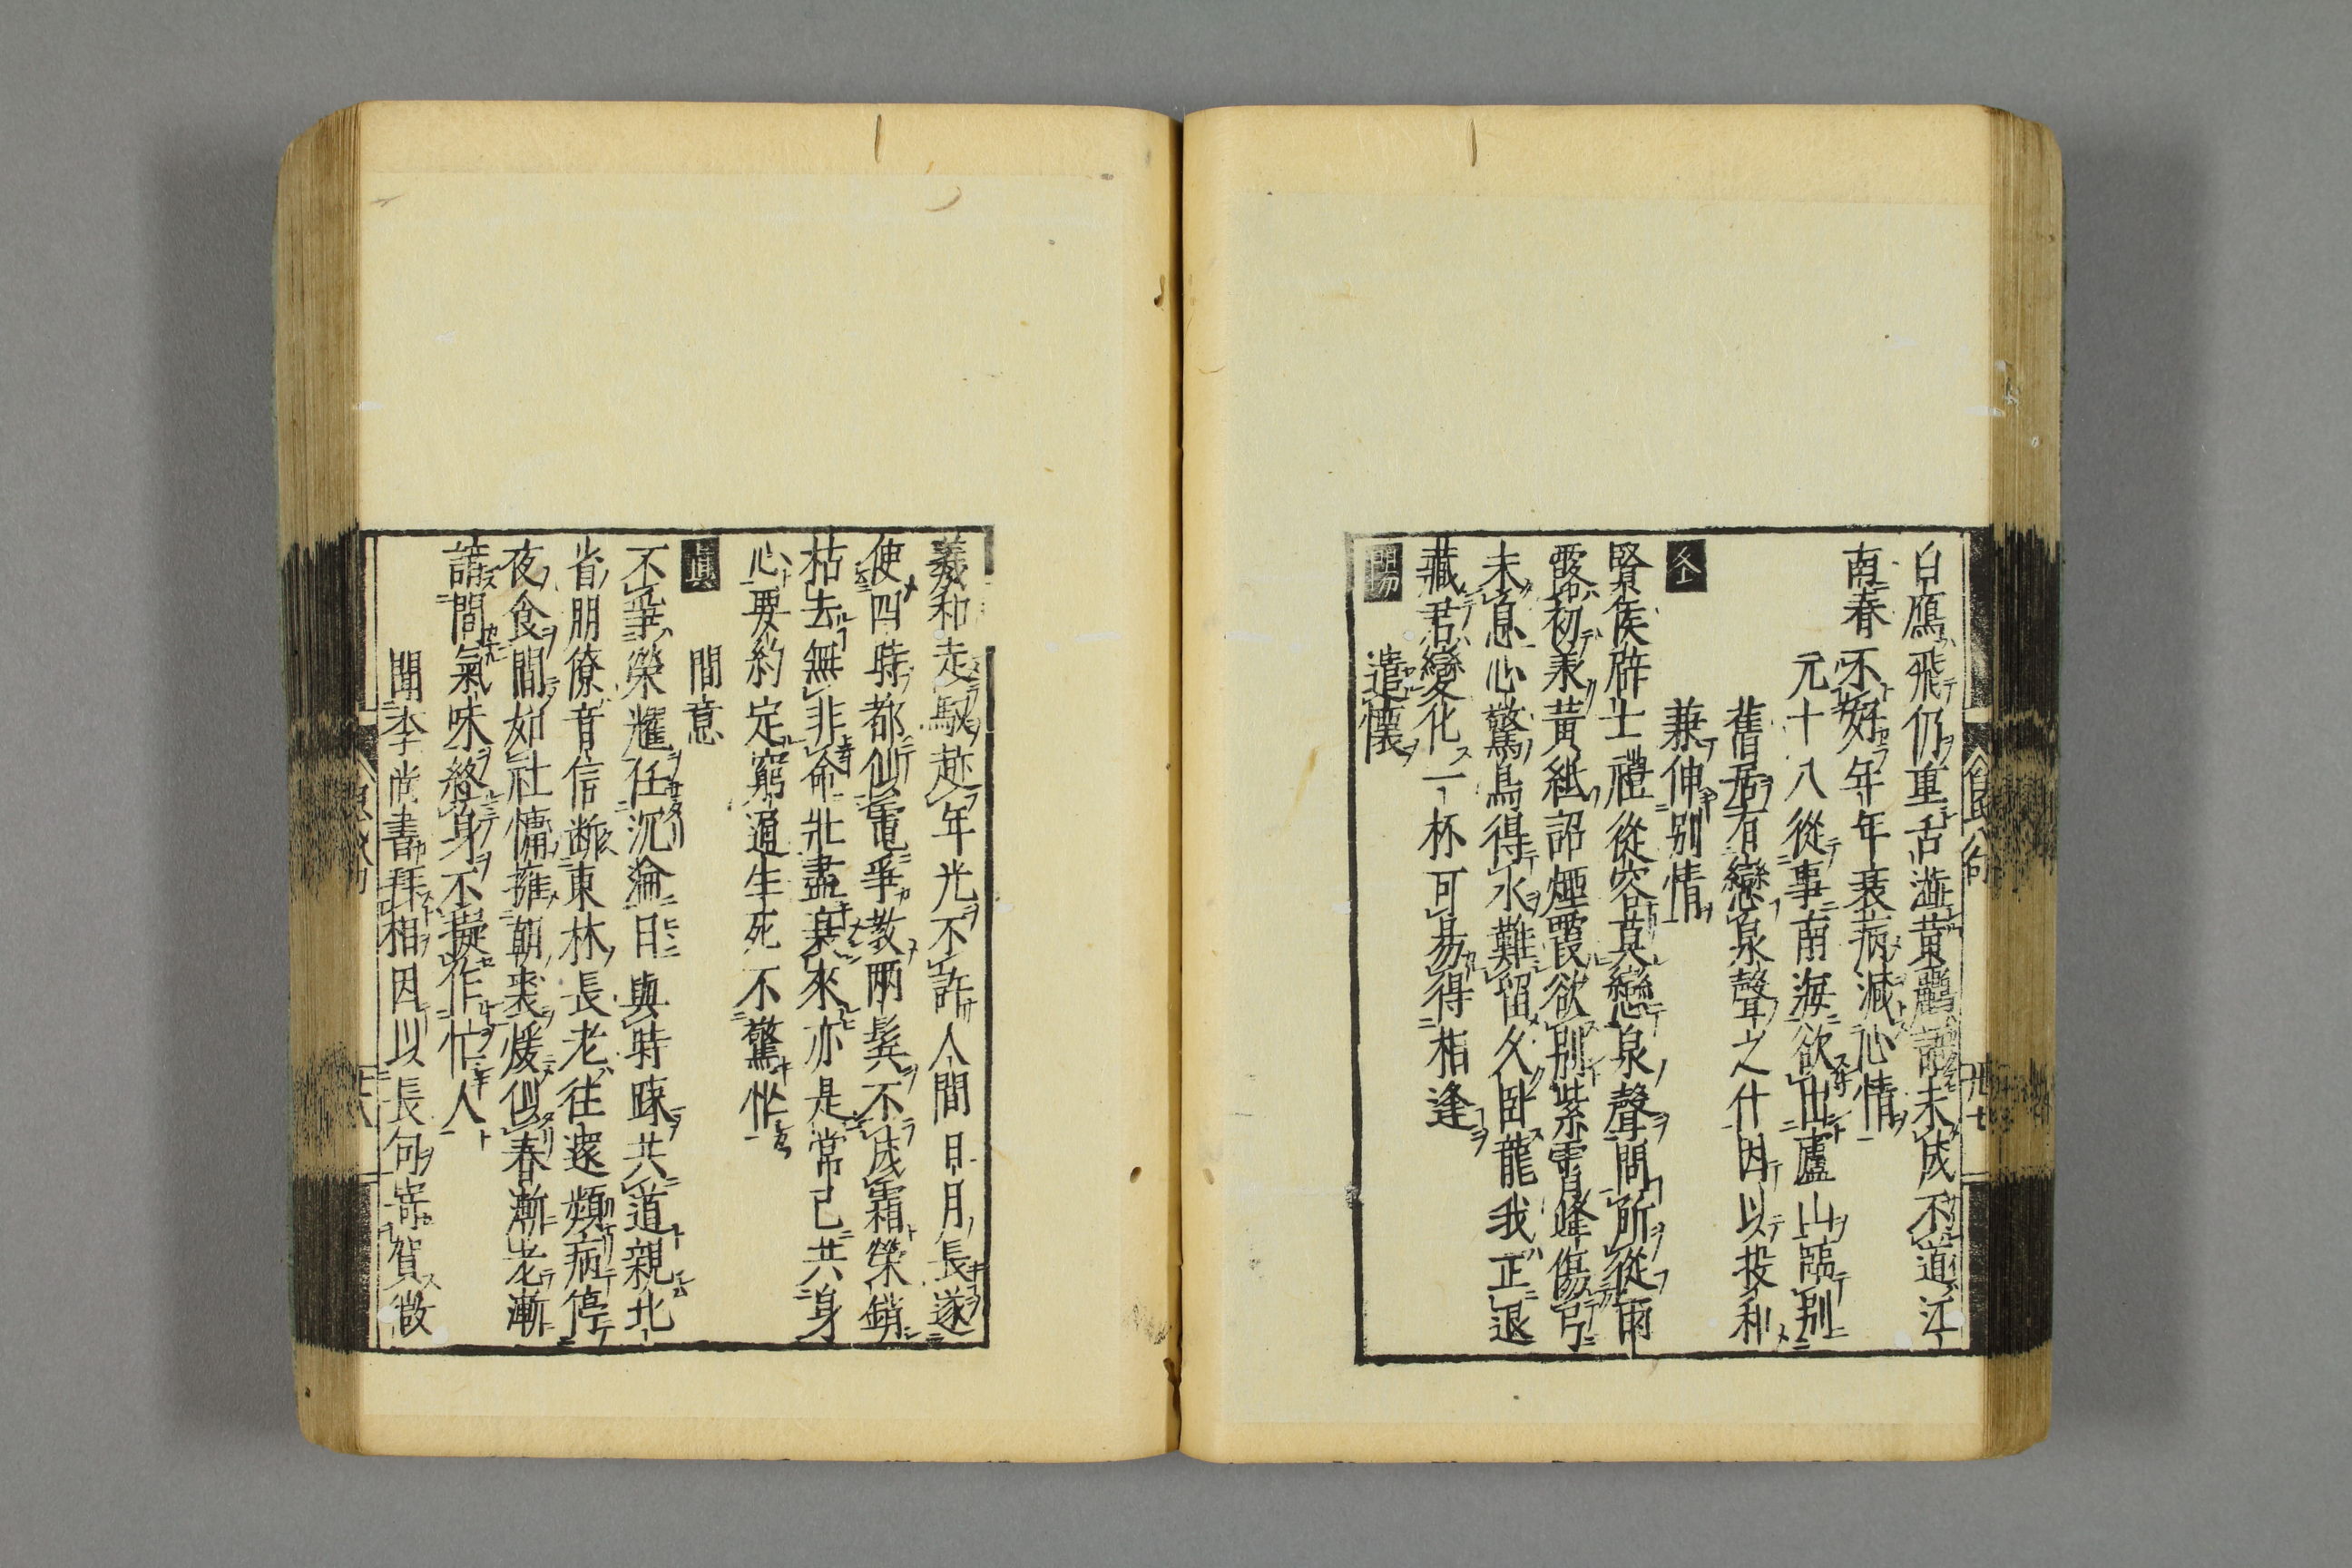 白鴈飛仍重舌澁黃鸝語未成不道江
南春不好年年衰病減心情
元十八從事南海欲出廬山臨別
舊居有戀泉聲之什因以投和
兼伸別情
賢侯辟士禮從容莫戀泉聲問所從雨
露初羕黃紙詔煙霞欲別紫霄峰傷弓
未息心驚鳥得水難留久臥龍我正退
藏君變化一杯可易得相逢
遣懷
羲和走馭趂年光不許人間日月長遂
使四時都似電爭教兩鬂不成霜榮銷
枯去無非命壯盡衰來亦是常已共身
心要約定窮通生死不驚忙
眞
閒意
不爭榮耀任沉淪日與時踈共道親北
省朋僚音信斷東林長老往還頻病停
夜食閒如社慵擁朝裘煖似春漸老漸
諳閒氣味終身不擬作忙人
聞李尚書拜相因以長句寄賀微